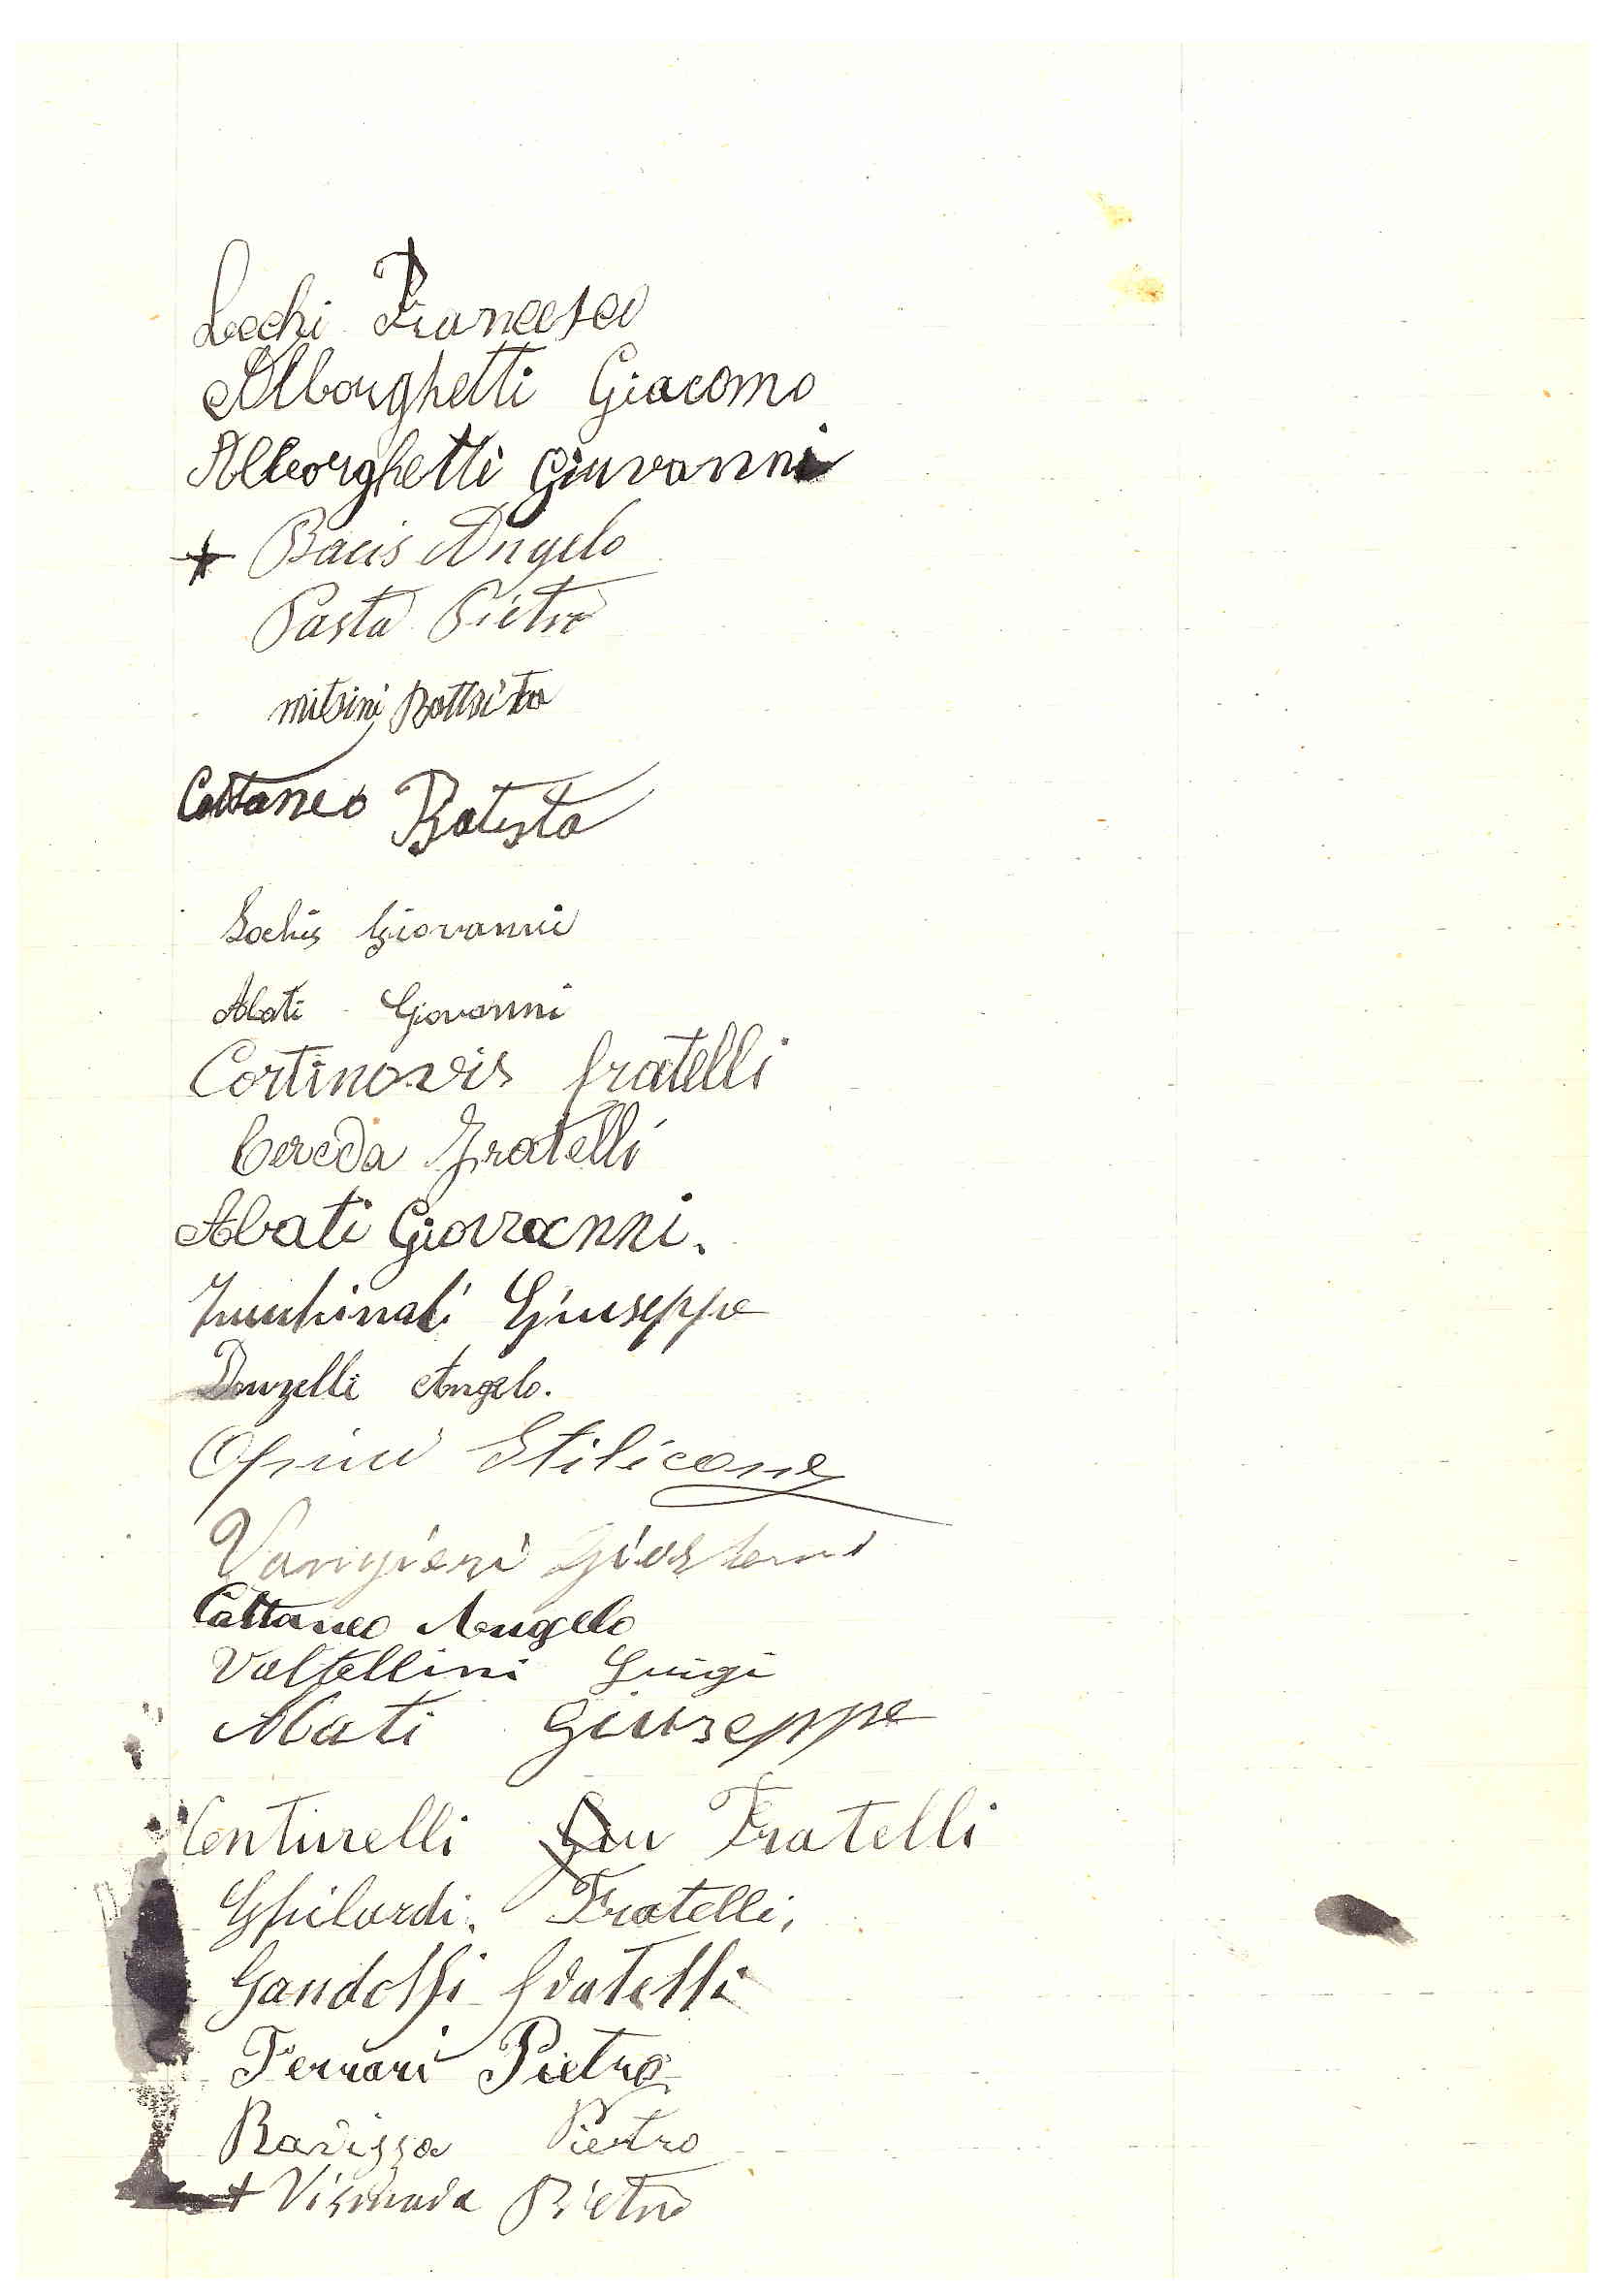 Lochi Francesco
Alborghetti Giacomo
Alborghetti Giuvanni
+ Bacis Angelo
Pasta Pietro
Cattaneo Batista
Lochis Giovanni
Abati Giovanni
Cortinovis fratelli
Cereda Fratelli
Abati Giovanni.
Giuseppe
Donzelli Angelo.
Stilicone
Vangieri
Cattaneo Angelo
Valtellini Luigi
Abati Giuseppe
Centurelli Fratelli
Ghilardi. Fratelli,
Gandolfi fratelli
Ferrari Pietro
Ravizza Pietro
+ Vismada Pietro